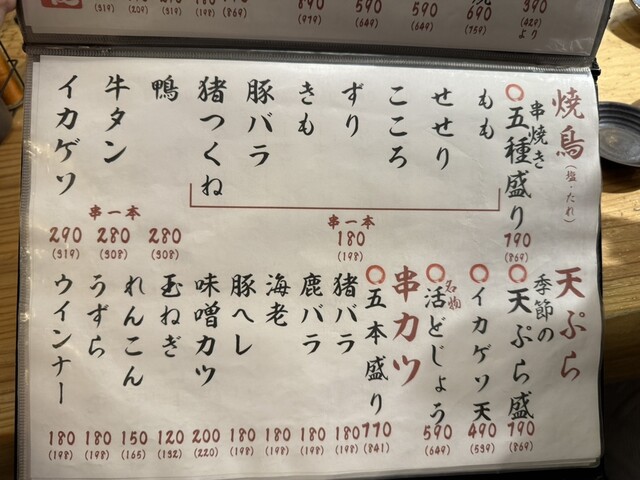 焼鳥(塩・たれ)
○串焼き五種盛り 790 (869)
もも
せせり
こころ
ずり
きも
豚バラ
猪つくね
串一本 180 (198)
鴨 280 (308)
牛タン 280 (308)
串一本
イカゲソ 290 (319)
天ぷら
○季節の天ぷら盛 790 (869)
○イカゲソ天 490 (539)
○名物 活どじょう 590 (649)
串カツ
○五本盛り 770 (841)
猪バラ 180 (198)
鹿バラ 180 (198)
海老 180 (198)
豚ヘレ 180 (198)
味噌カツ 200 (220)
玉ねぎ 120 (132)
れんこん 150 (165)
うずら 180 (198)
ウインナー 180 (198)